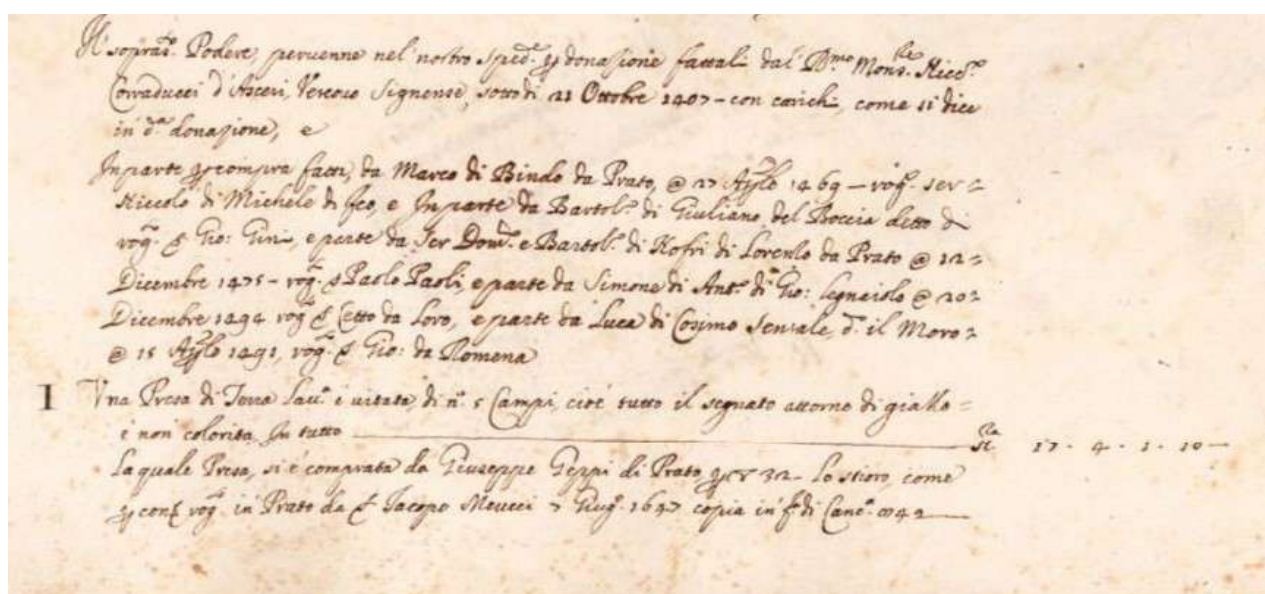 Il soprad.º Podere, pervenne nel nostro sped.e p donazione fattali dal R.mo Mons.re Nicc.º
Corraducci d'Asceri, Vescovo Signense, sotto di 21 Ottobre 1407 - con carichi, come si dice
in d.a donazione, e
In parte p compra fatta, da Marco di Bindo da Prato, @ 27 Aple 1469 — rog. ser =
Niccolo di Michele di fco, e In parte da Bartol.º di Giuliano del Boccia detto di
rog. S Gio: Gini, e parte da Ser Dom.º e Bartol.º di Nofri di Lorenzo da Prato @ 12 =
Dicembre 1475 - rog. S Paolo Paoli, e parte da Simone di Ant.º di Gio: legnaiolo @ 20 =
Dicembre 1494 rog S Cetto da Loro, e parte da Luca di Cosimo Sensale, d. il Moro =
@ 15 Aple 1491, rog. S Gio: da Romena
I Una Presa di Terra Lau.a e uitata, di n.º 5 Campi, cioè tutto il segnato attorno di giallo =
e non colorita, In tutto — st.ra 17 - 4 - 1 - 10 —
La quale Presa, si è comprata da Giuseppe Geppi di Prato p 32 - lo stioro, come
p rog. in Prato da S Iacopo Meucci 7 Giug.º 1647 copia in f.a di Canc.a 42